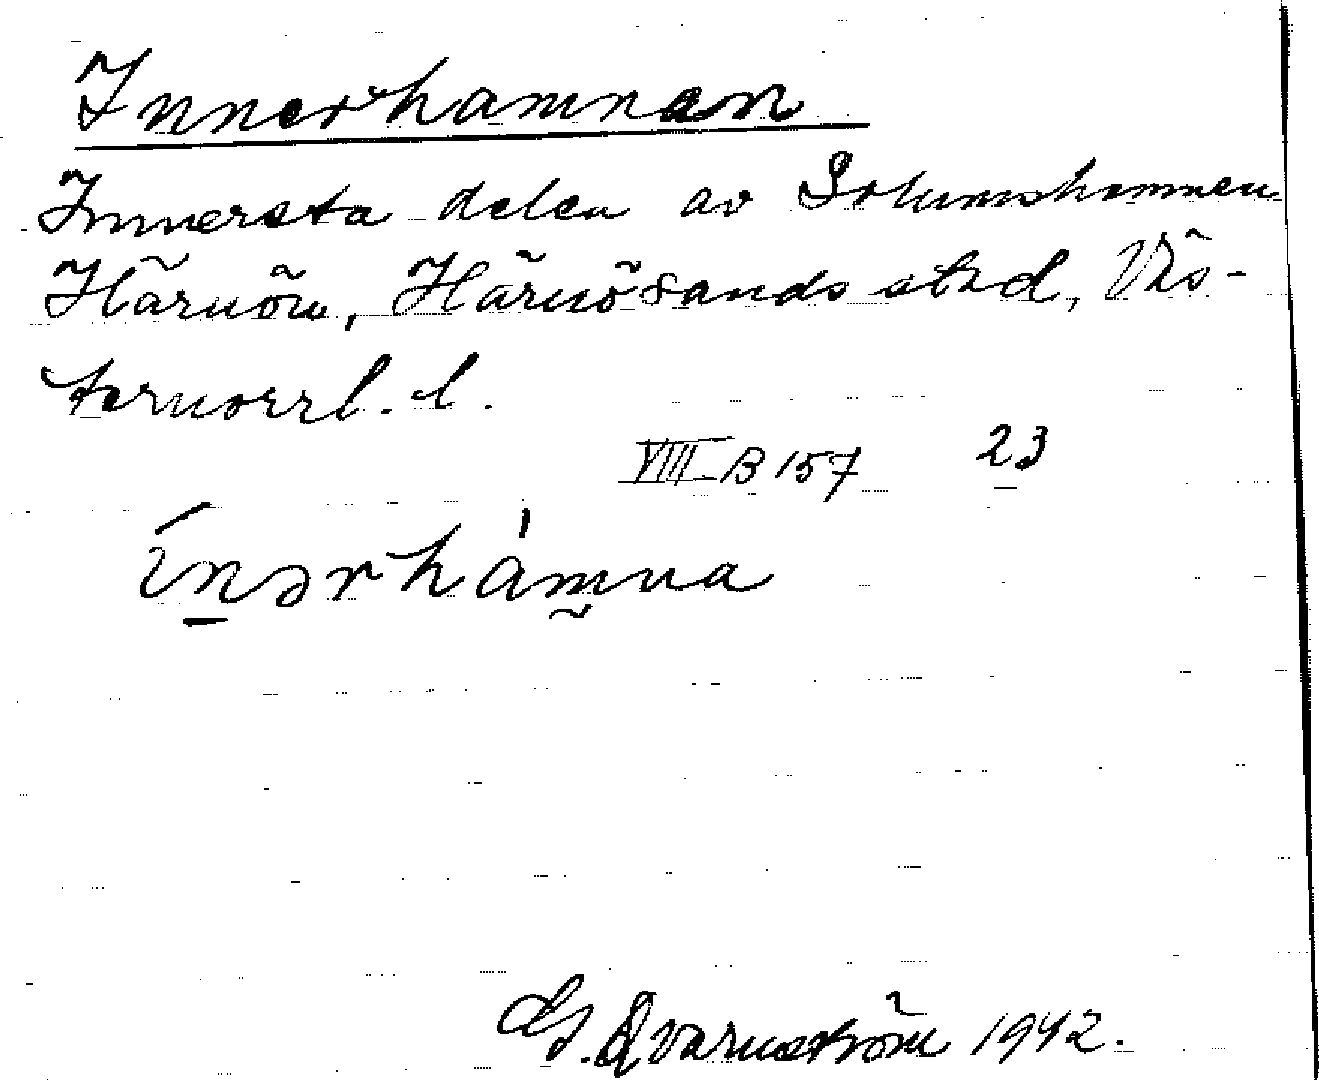 Innerhamnen
Innersta delen av Solumshamnen
Härnön, Härnösands stad, Väs-
ternorrl. l.
VIII B 157 23
ínərhámna
G. Qvarnström 1942.